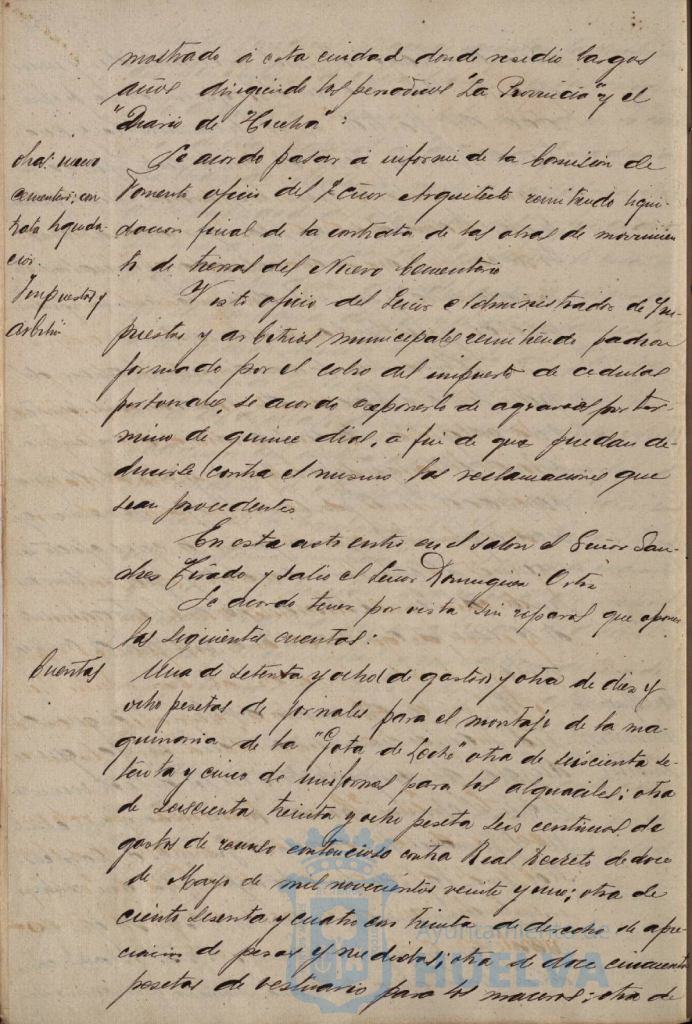 mostrado á esta ciudad donde residio largos
años dirigiendo los periodicos "La Provincia" y el
"Diario de Huelva":
Obras nuevo
cementerio; con
trata liquida
cion.
Se acordo pasar á informe de la Comisión de
Fomento oficio del Señor Arquitecto remitiendo liqui-
dacion final de la contrata de las obras de movimien
to de tierras del Nuevo Cementerio
Impuestos y
arbitrios
Visto oficio del Señor Administrador de Im
puestos y arbitrios municipales remitiendo padron
formado por el cobro del impuesto de cedulas
personales, se acordo exponerlo de agravios por ter-
mino de quince dias, á fin de que puedan de-
ducirse contra el mismo las reclamaciones que
sean procedentes
En este acto entro en el salon el Señor San-
ches Tirado y salio el Señor Dominguez Ortiz
Se acordo tener por vista sin reparos que oponer
las siguientes cuentas:
Cuentas
Una de setenta y ocho de gastos y otra de diez y
ocho pesetas de jornales para el montaje de la ma-
quinaria de la "Gota de Leche" otra de seiscienta se-
tenta y cinco de uniformes para los alguaciles; otra
de seiscienta treinta y ocho peseta seis centimos de
gastos de recurso contencioso contra Real Decreto de doce
de Mayo de mil novecientos veinte y uno; otra de
ciento sesenta y cuatro con treinta de derecho de apre-
ciacion de pesas y medidas; otra de doce cincuenta
pesetas de vestuario para los maceros; otra de
Ayuntamiento de
HUELVA